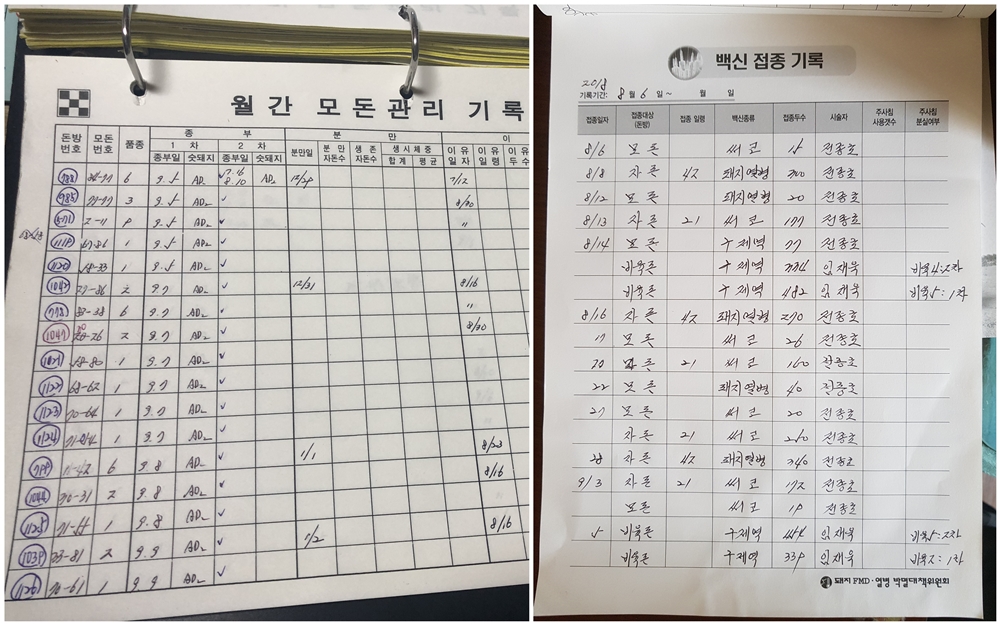 월간 모돈관리 기록
돈방번호 모돈번호 품종 종부 분만 이
1차 2차 분만일 분만자돈수 생존자돈수 생시체중 이유일자 이유일령 이유두수
종부일 숫돼지 종부일 숫돼지 합계 평균
788 6 9.5 AD2 8.10 AD2 12/29 7/12
785 3 9.5 AD2 ✓ 8/30
9.5 AD2 ✓ 〃
1 9.5 AD2 ✓
1 9.5 AD2 ✓
1042 2 9.7 AD2 ✓ 12/31 8/16
6 9.7 AD2 ✓ 〃
1047 2 9.7 AD2 ✓ 8/30
1021 58-80 1 9.7 AD2 ✓
1122 68-62 1 9.7 AD2 ✓
1123 70-64 1 9.7 AD2 ✓
1124 1 9.7 AD2 ✓
6 9.8 AD2 1/1 8/23
1044 30-31 2 9.8 AD2 8/16
1 9.8 AD2 ✓
1039 33-81 2 9.9 AD2 ✓ 1/2 8/16
1126 70-61 1 9.9 AD2 ✓
백신 접종 기록
2018
기록기간: 8월 6일 ~ 월 일
접종일자 접종대상(돈방) 접종 일령 백신종류 접종두수 시술자 주사침 사용갯수 주사침 분실여부
8/6 모돈 써코 15 전종호
8/8 자돈 42 돼지열병 300 전종호
8/12 모돈 돼지열병 20 전종호
8/13 자돈 21 써코 177 전종호
8/14 모돈 구제역 77 전종호
비육돈 구제역 임재욱 비육4:2차
비육돈 구제역 482 임재욱 비육5:1차
8/16 자돈 42 돼지열병 270 전종호
17 모돈 써코 26 전종호
20 모돈 21 써코 160 전종호
22 모돈 돼지열병 40 전종호
27 모돈 써코 20 전종호
자돈 21 써코 260 전종호
28 자돈 42 돼지열병 340 전종호
9/3 자돈 21 써코 172 전종호
모돈 써코 19 전종호
5 비육돈 구제역 454 임재욱 비육5:2차
비육돈 구제역 339 임재욱 비육2:1차
돼지 FMD·열병 박멸대책위원회